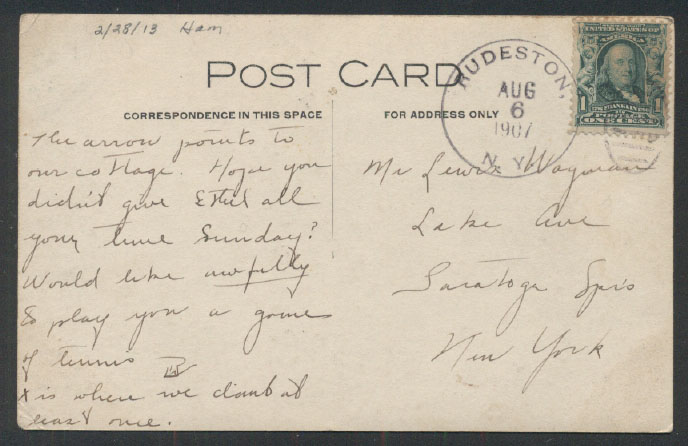 2/28/13 Ham
POST CARD
CORRESPONDENCE IN THIS SPACE
FOR ADDRESS ONLY
RUDESTON,
AUG
6
1907
N.Y.
UNITED STATES OF AMERICA
FRANKLIN
1 POSTAGE 1
ONE CENT
The arrow points to
our cottage. Hope you
didn't give Ethel all
your time Sunday?
Would like awfully
to play you a game
of tennis
x is where we climb at
least once.
Mr Lewis Wayman
Lake Ave
Saratoga Sprs
New York